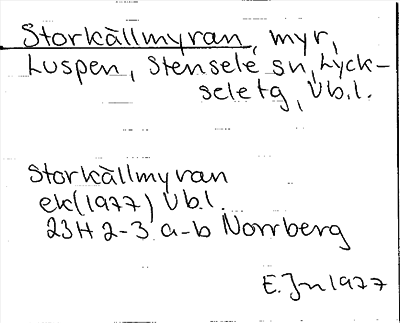 Storkällmyran, myr,
Luspen, Stensele sn, Lyck-
sele tg, Vb.l.
Storkällmyran
ek(1977) Vb.l.
23H 2-3 a-b Norrberg
E.Jn 1977